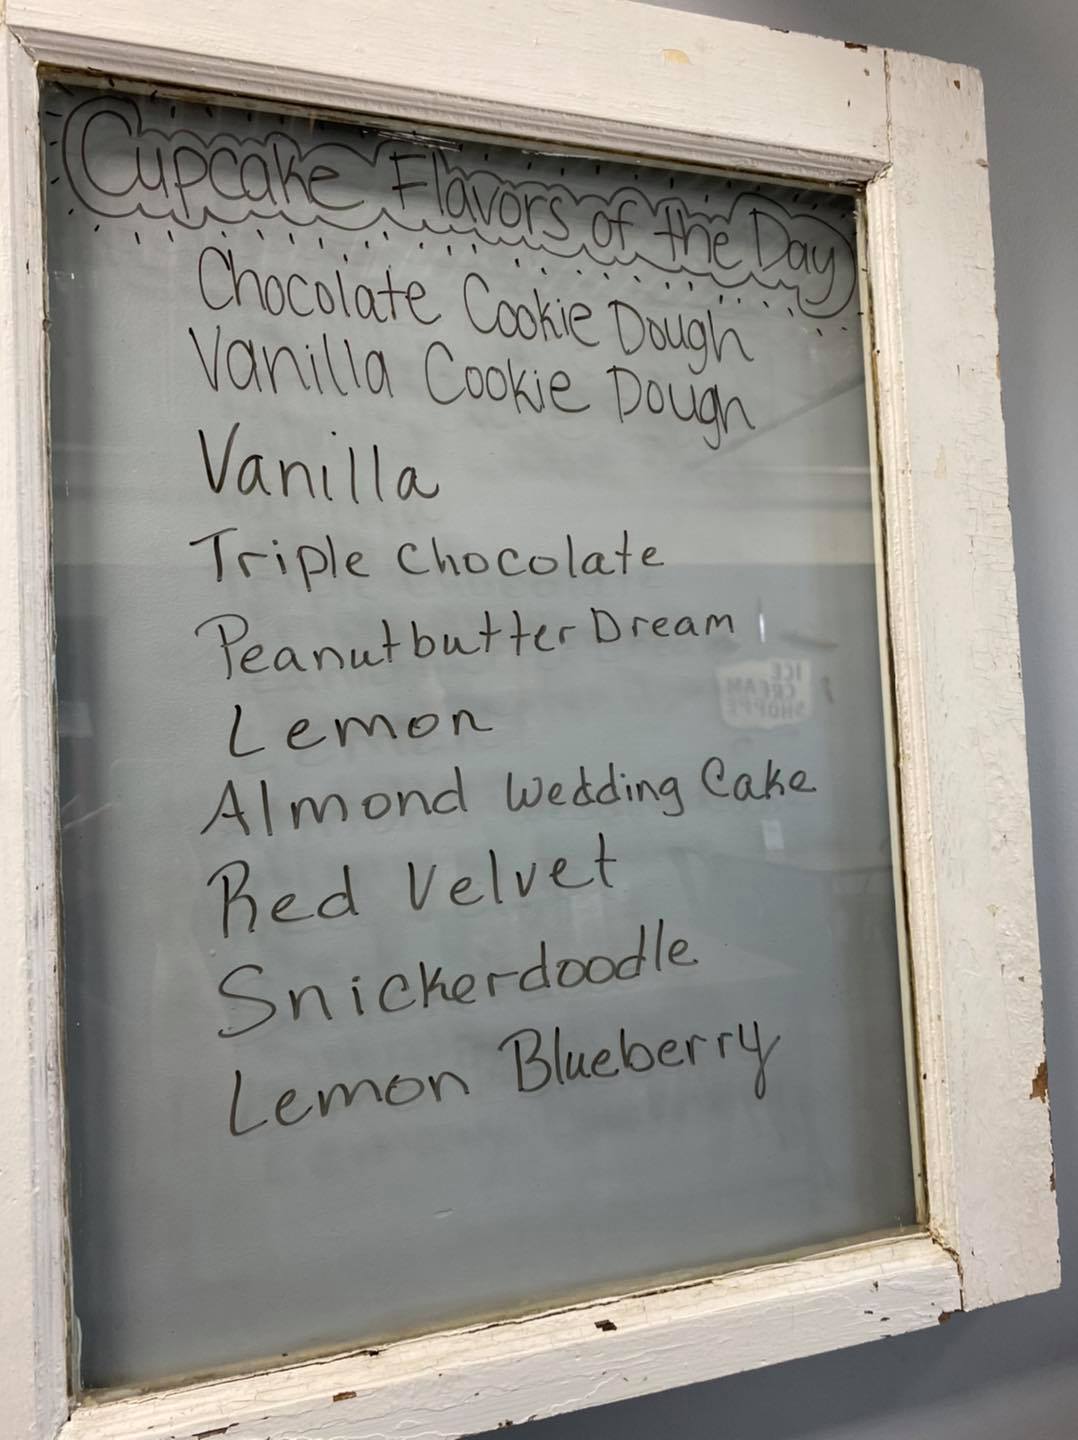 Cupcake Flavors of the Day
Chocolate Cookie Dough
Vanilla Cookie Dough
Vanilla
Triple Chocolate
Peanutbutter Dream
Lemon
Almond Wedding Cake
Red Velvet
Snickerdoodle
Lemon Blueberry
ICE
CREAM
SHOPPE